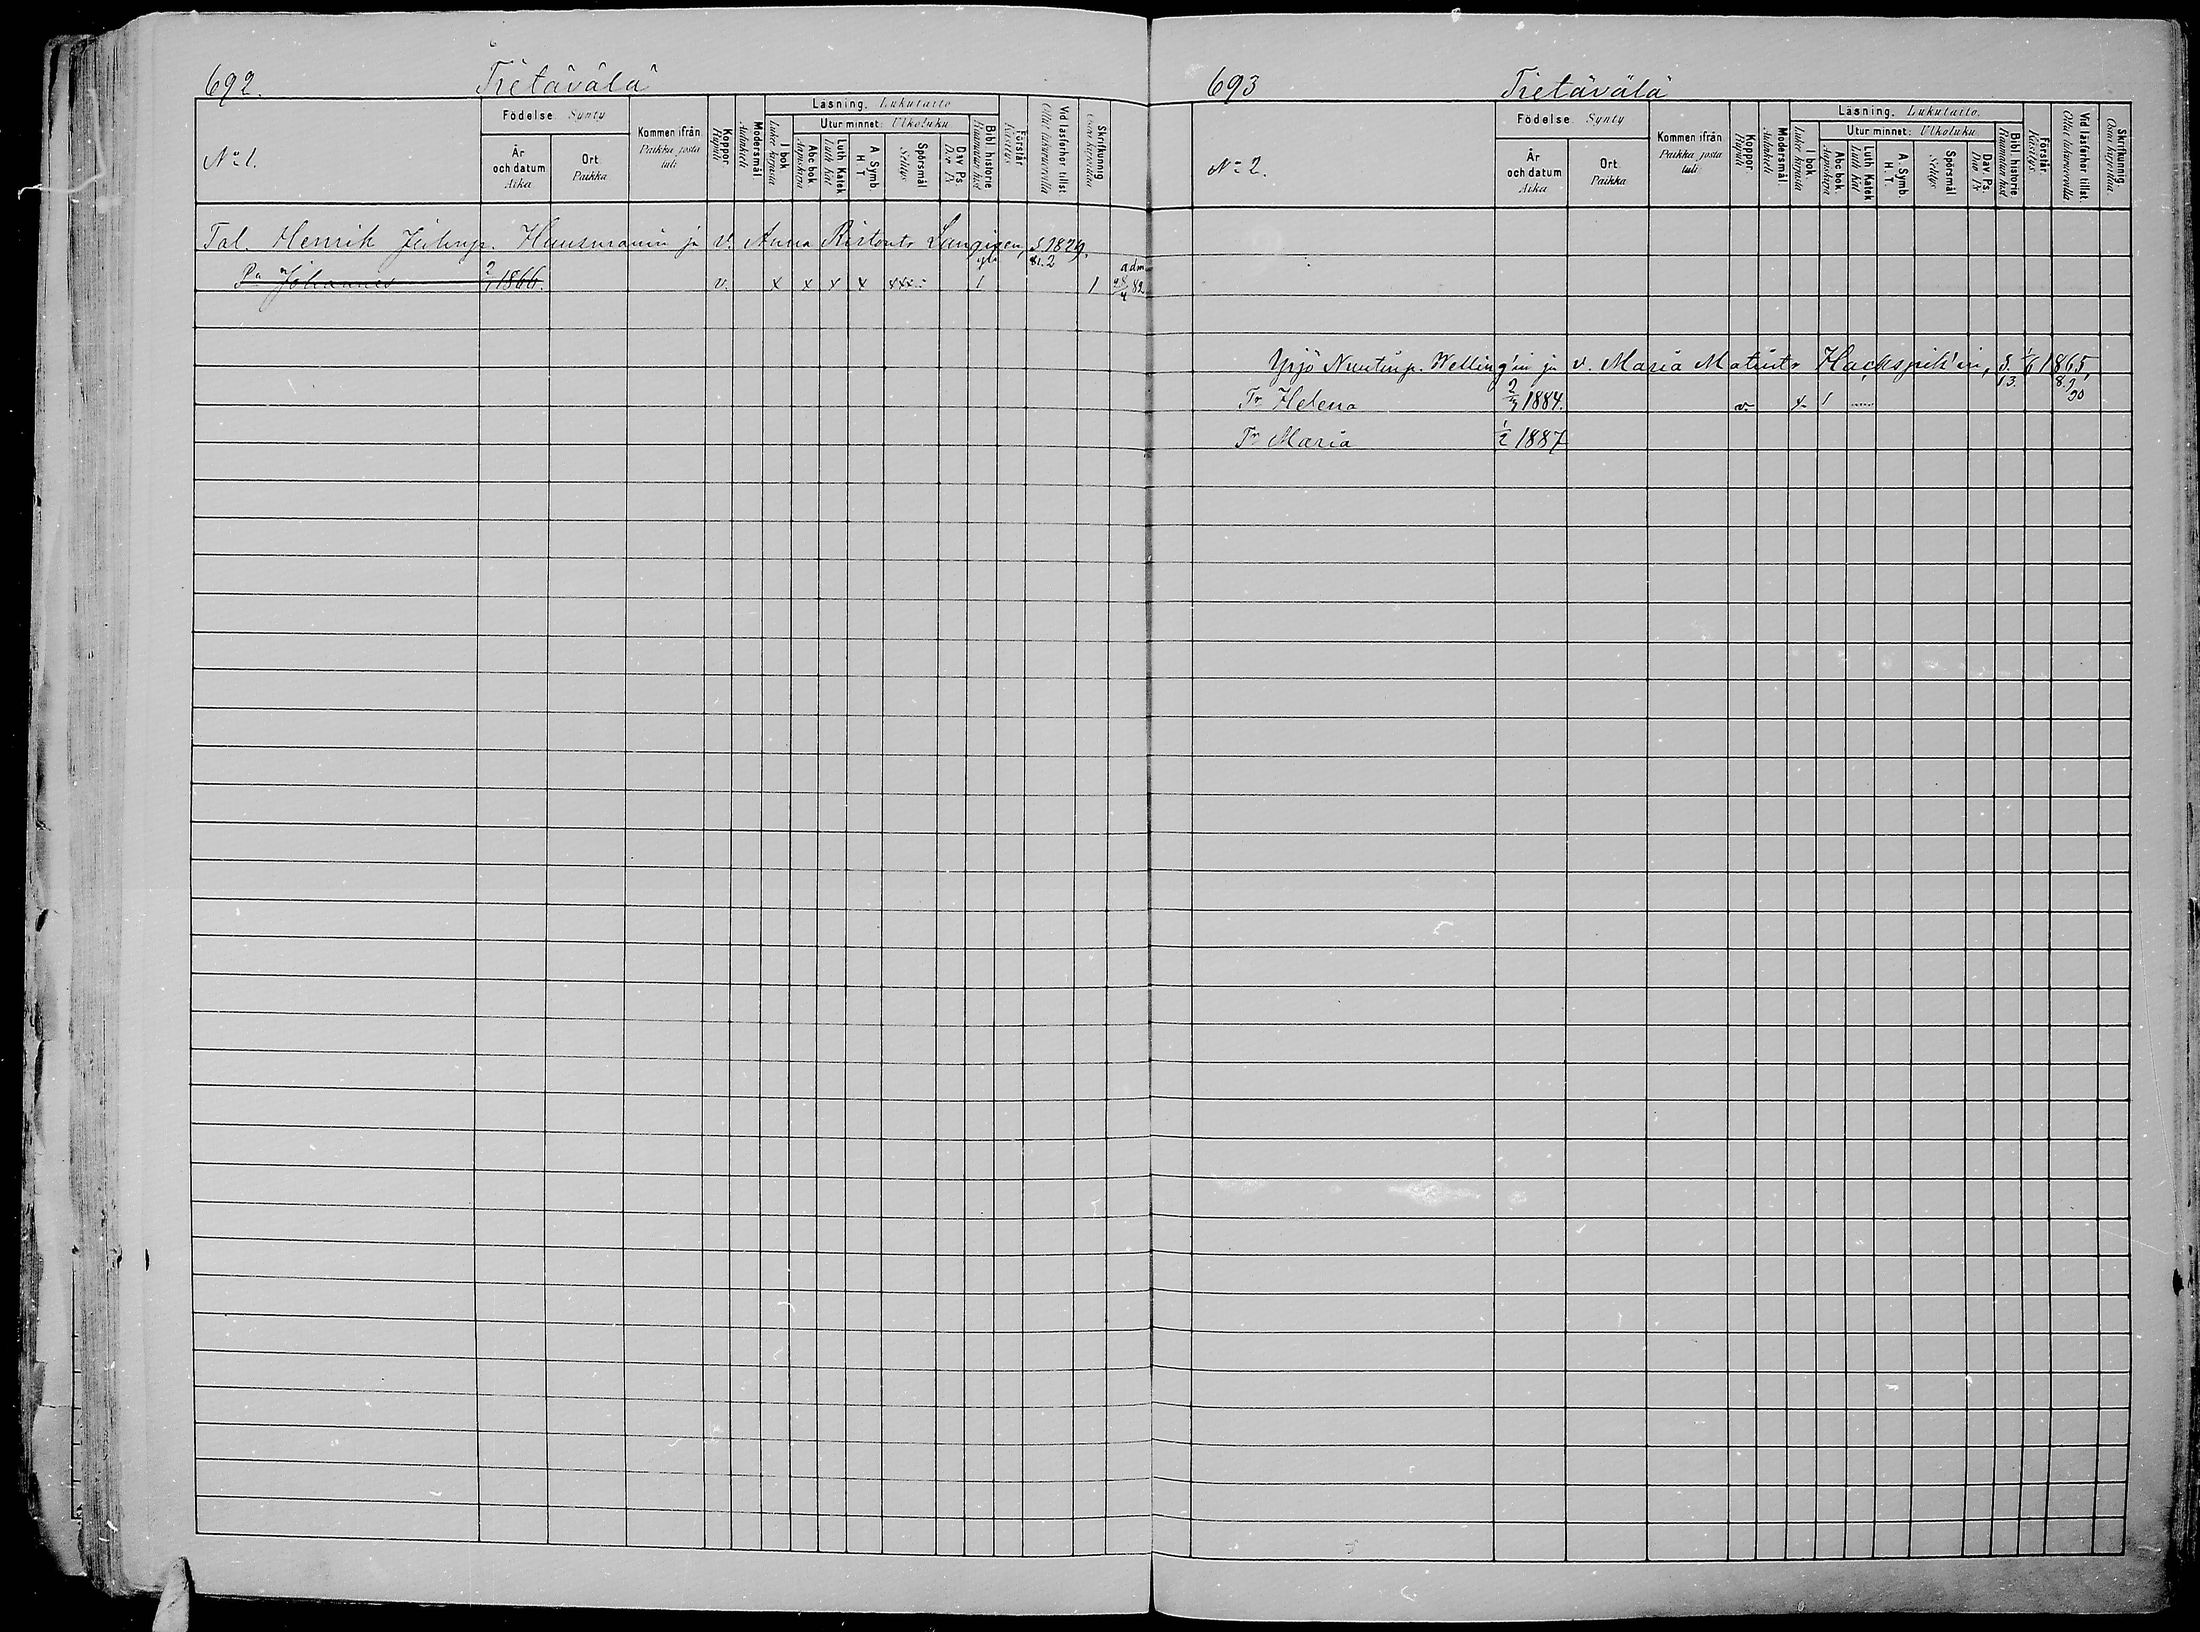 692.
Tietävälä
No 1.
Födelse Synty
År och datum Aika
Ort Paikka
Kommen ifrån Paikka josta tuli
Koppor Rupuli
Modersmål Äidinkieli
Läsning. Lukutaito
I bok. Lukee kirjasta
Utur minnet: Ulkoluku
Abc bok Aapiskirja
Luth Katek Luth Kat
A Symb. H T
Spörsmål Selitys
Dav Ps Dav Ps
Bibl. historie Raamatun hist
Förstår Käsitys
Vid läsförhör tillst. Ollut lukuvuoroilla
Skrifkunnig Osaa kirjoittaa
Tal. Henrik Huusmanin ja v. Anna Ristontr s. 1829.
81.2 adm
Pa Johannes 2/1 1866. v. x x x x xxx 1 1 82
693
Tietävälä
No 2.
Födelse Synty
År och datum Aika
Ort Paikka
Kommen ifrån Paikka josta tuli
Koppor Rupuli
Modersmål Äidinkieli
Läsning. Lukutaito.
I bok. Lukee kirjasta
Utur minnet: Ulkoluku
Abc bok. Aapiskirja
Luth Katek Luth Kat
A. Symb. H. T.
Spörsmål Selitys
Dav. Ps. Dav Ps
Bibl. historie Raamatun hist
Förstår Käsitys
Vid läsförhör tillst. Ollut lukuvuoroilla
Skrifkunnig Osaa kirjoittaa
Yrjö Nuutinp. Welling'in ja v. Maria Matintr Hackspik'in, s. 1/6 1865,
Tr Helena 1884. v. x 1
Tr Maria 1/2 1887